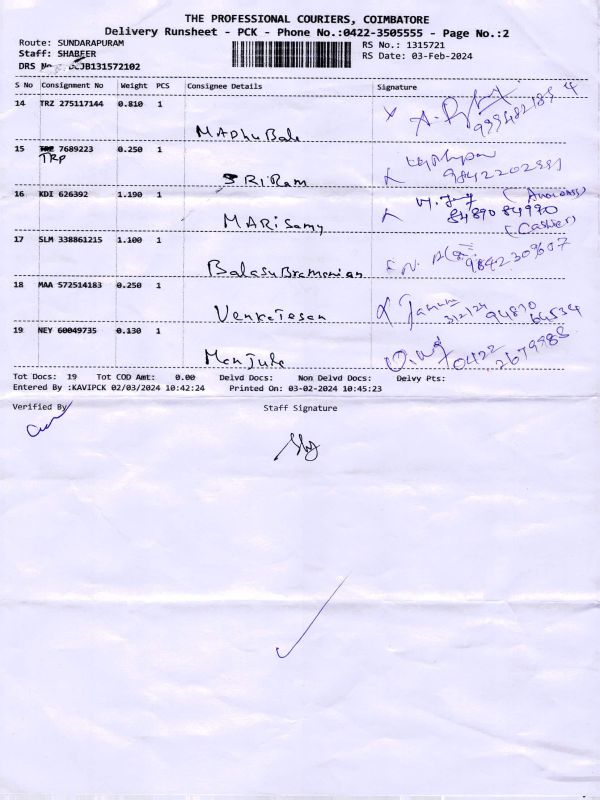 THE PROFESSIONAL COURIERS, COIMBATORE
Delivery Runsheet - PCK - Phone No.:0422-3505555 - Page No.:2
Route: SUNDARAPURAM
RS No.: 1315721
Staff: SHABEER
RS Date: 03-Feb-2024
DRS JB131572102
S No Consignment No Weight PCS Consignee Details Signature
14 TRZ 275117144 0.810 1
MADhuBala
15 7689223 0.250 1
TRP
SRIRam 9842202991
16 KDI 626392 1.190 1
MARiSamy 84890 84990
(Cashier)
17 SLM 338861215 1.100 1
BalasuBramanian
18 MAA 572514183 0.250 1
Venkatesan 3/2/24 94870
19 NEY 60049735 0.130 1
Manjula 0422
2679988
Tot Docs: 19 Tot COD Amt: 0.00 Delvd Docs: Non Delvd Docs: Delvy Pts:
Entered By :KAVIPCK 02/03/2024 10:42:24 Printed On: 03-02-2024 10:45:23
Verified By Staff Signature